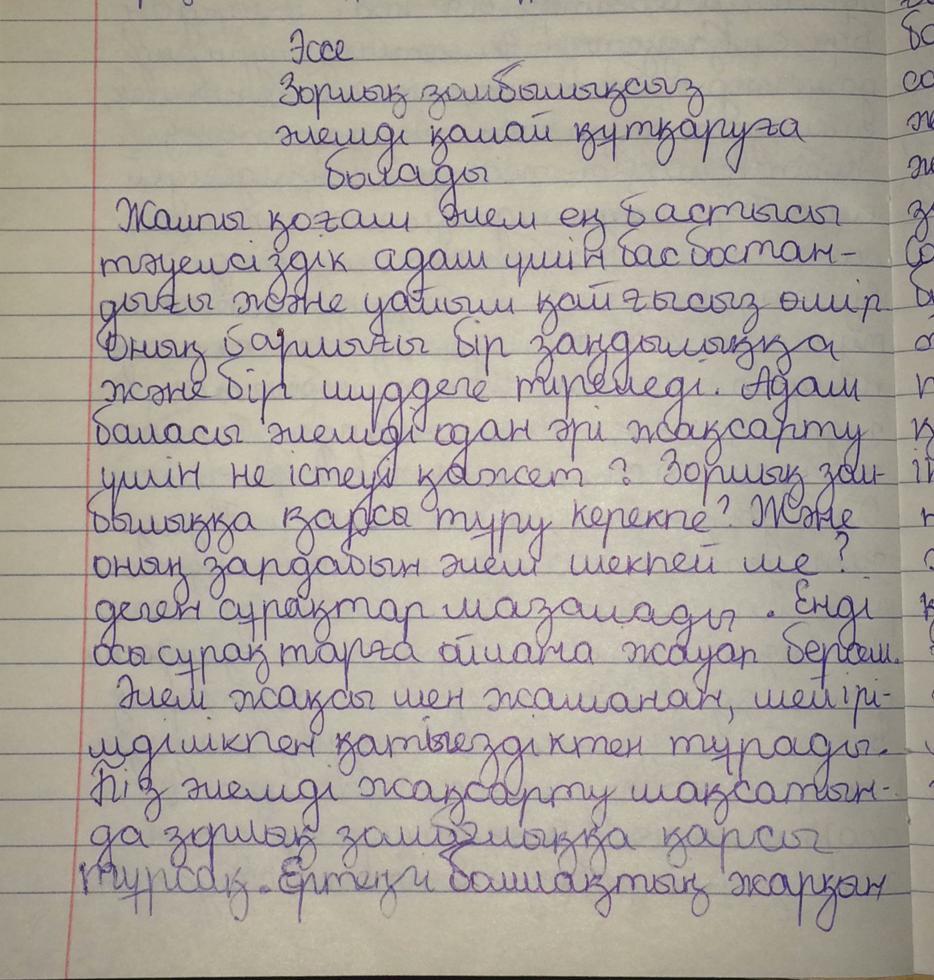 Эссе
Зорлық зомбылықсыз
әлемді қалай құтқаруға
болады
Жалпы қоғам әлем ең бастысы
тәуелсіздік адам үшін бас бостан-
дығы және уайым қайғысыз өмір
оның барлығы бір заңдылыққа
және бір мүддеге тіреледі. Адам
баласы әлемді одан әрі жақсарту
үшін не істеуі қажет? Зорлық зом-
былыққа қарсы тұру керекпе? Және
оның зардабын әлем шекпей ме?
деген сұрақтар мазалады. Енді
осы сұрақтарға ойлана жауап берсем.
Әлем жақсы мен жаманнан, мейірі-
мділікпен қатыгездіктен тұрады.
Біз әлемді жақсарту мақсатын-
да зорлық зомбылыққа қарсы
тұрсақ. Ертеңгі болашақтың жарқын
бо
со